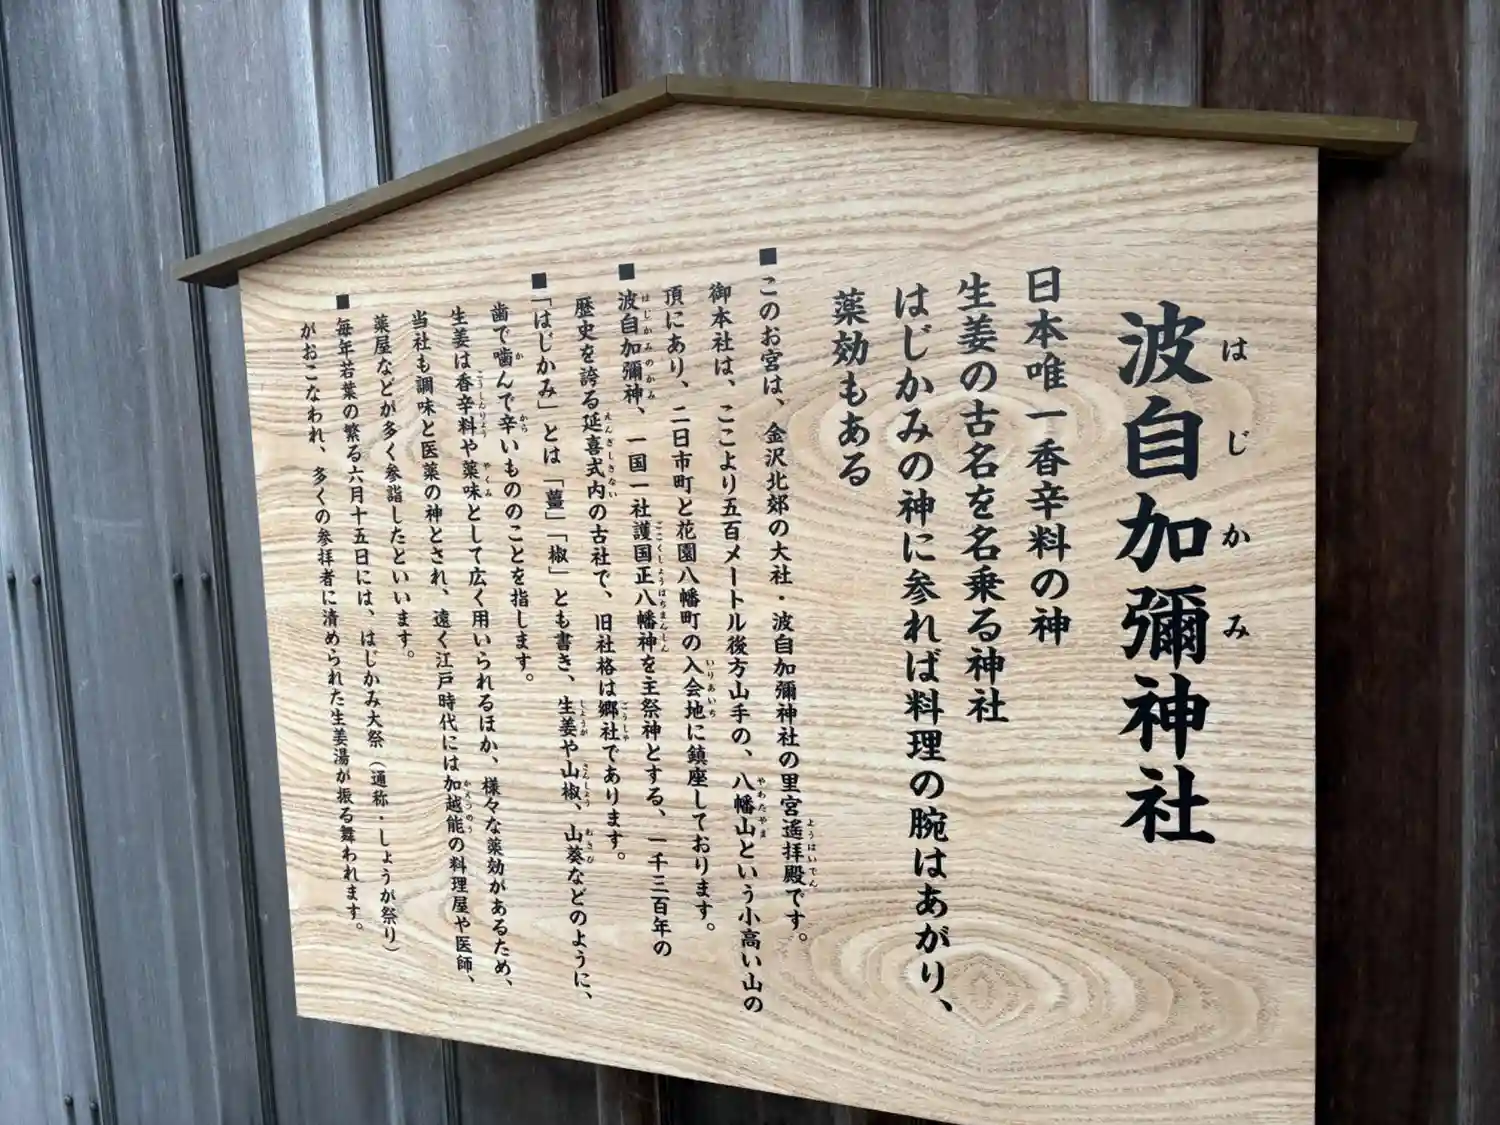 波自加彌神社
はじかみ
日本唯一香辛料の神
生姜の古名を名乗る神社
はじかみの神に参れば料理の腕はあがり、
薬効もある
■このお宮は、金沢北郊の大社・波自加彌神社の里宮遙拝殿です。
ようはいでん
御本社は、ここより五百メートル後方山手の、八幡山という小高い山の
やわたやま
頂にあり、二日市町と花園八幡町の入会地に鎮座しております。
いりあいち
■波自加彌神、一国一社護国正八幡神を主祭神とする、一千三百年の
はじかみのかみ ごこくしょうはちまんしん
歴史を誇る延喜式内の古社で、旧社格は郷社であります。
えんぎしきない ごうしゃ
■「はじかみ」とは「薑」「椒」とも書き、生姜や山椒、山葵などのように、
しょうが さんしょう わさび
歯で噛んで辛いもののことを指します。
か から
生姜は香辛料や薬味として広く用いられるほか、様々な薬効があるため、
こうしんりょう やくみ
当社も調味と医薬の神とされ、遠く江戸時代には加越能の料理屋や医師、
かえつのう
薬屋などが多く参詣したといいます。
■毎年若葉の繁る六月十五日には、はじかみ大祭（通称・しょうが祭り）
がおこなわれ、多くの参拝者に清められた生姜湯が振る舞われます。